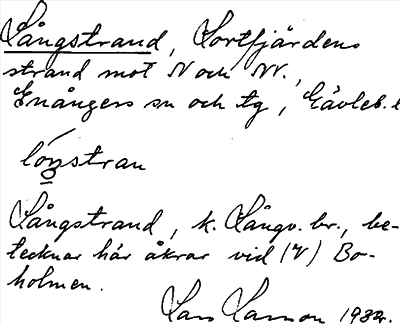 Långstrand, Sortfjärdens
strand mot N och NV.,
Enångers sn och tg, Gävleb. l
lóŋstran
Långstrand, k. Långv. br., be-
tecknar här åkrar vid (V) Bo-
holmen.
Lars Larson 1932.